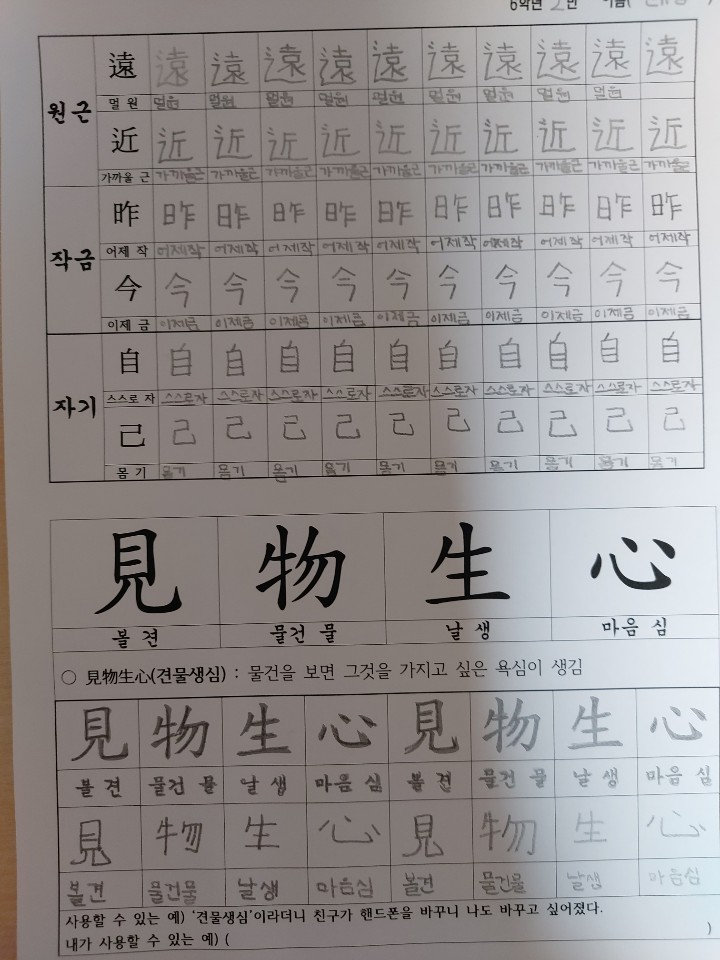 6학년 2반 이름(
원근 遠 遠 遠 遠 遠 遠 遠 遠 遠 遠 遠
멀 원 멀원 멀원 멀원 멀원 멀원 멀원 멀원 멀원 멀원
近 近 近 近 近 近 近 近 近 近 近
가까울 근 가까울근 가까울근 가까울근 가까울근 가까울근 가까울근 가까울근 가까울근 가까울근 가까울근
작금 昨 昨 昨 昨 昨 昨 昨 昨 昨 昨 昨
어제 작 어제작 어제작 어제작 어제작 어제작 어제작 어제작 어제작 어제작 어제작
今 今 今 今 今 今 今 今 今 今 今
이제 금 이제금 이제금 이제금 이제금 이제금 이제금 이제금 이제금 이제금 이제금
자기 自 自 自 自 自 自 自 自 自 自 自
스스로 자 스스로자 스스로자 스스로자 스스로자 스스로자 스스로자 스스로자 스스로자 스스로자 스스로자
己 己 己 己 己 己 己 己 己 己 己
몸 기 몸기 몸기 몸기 몸기 몸기 몸기 몸기 몸기 몸기 몸기
見 物 生 心
볼 견 물건 물 날 생 마음 심
○ 見物生心(견물생심) : 물건을 보면 그것을 가지고 싶은 욕심이 생김
見 物 生 心 見 物 生 心
볼 견 물건 물 날 생 마음 심 볼 견 물건 물 날 생 마음 심
見 物 生 心 見 物 生 心
볼견 물건물 날생 마음심 볼견 물건물 날생 마음심
사용할 수 있는 예) '견물생심'이라더니 친구가 핸드폰을 바꾸니 나도 바꾸고 싶어졌다.
내가 사용할 수 있는 예) ( )